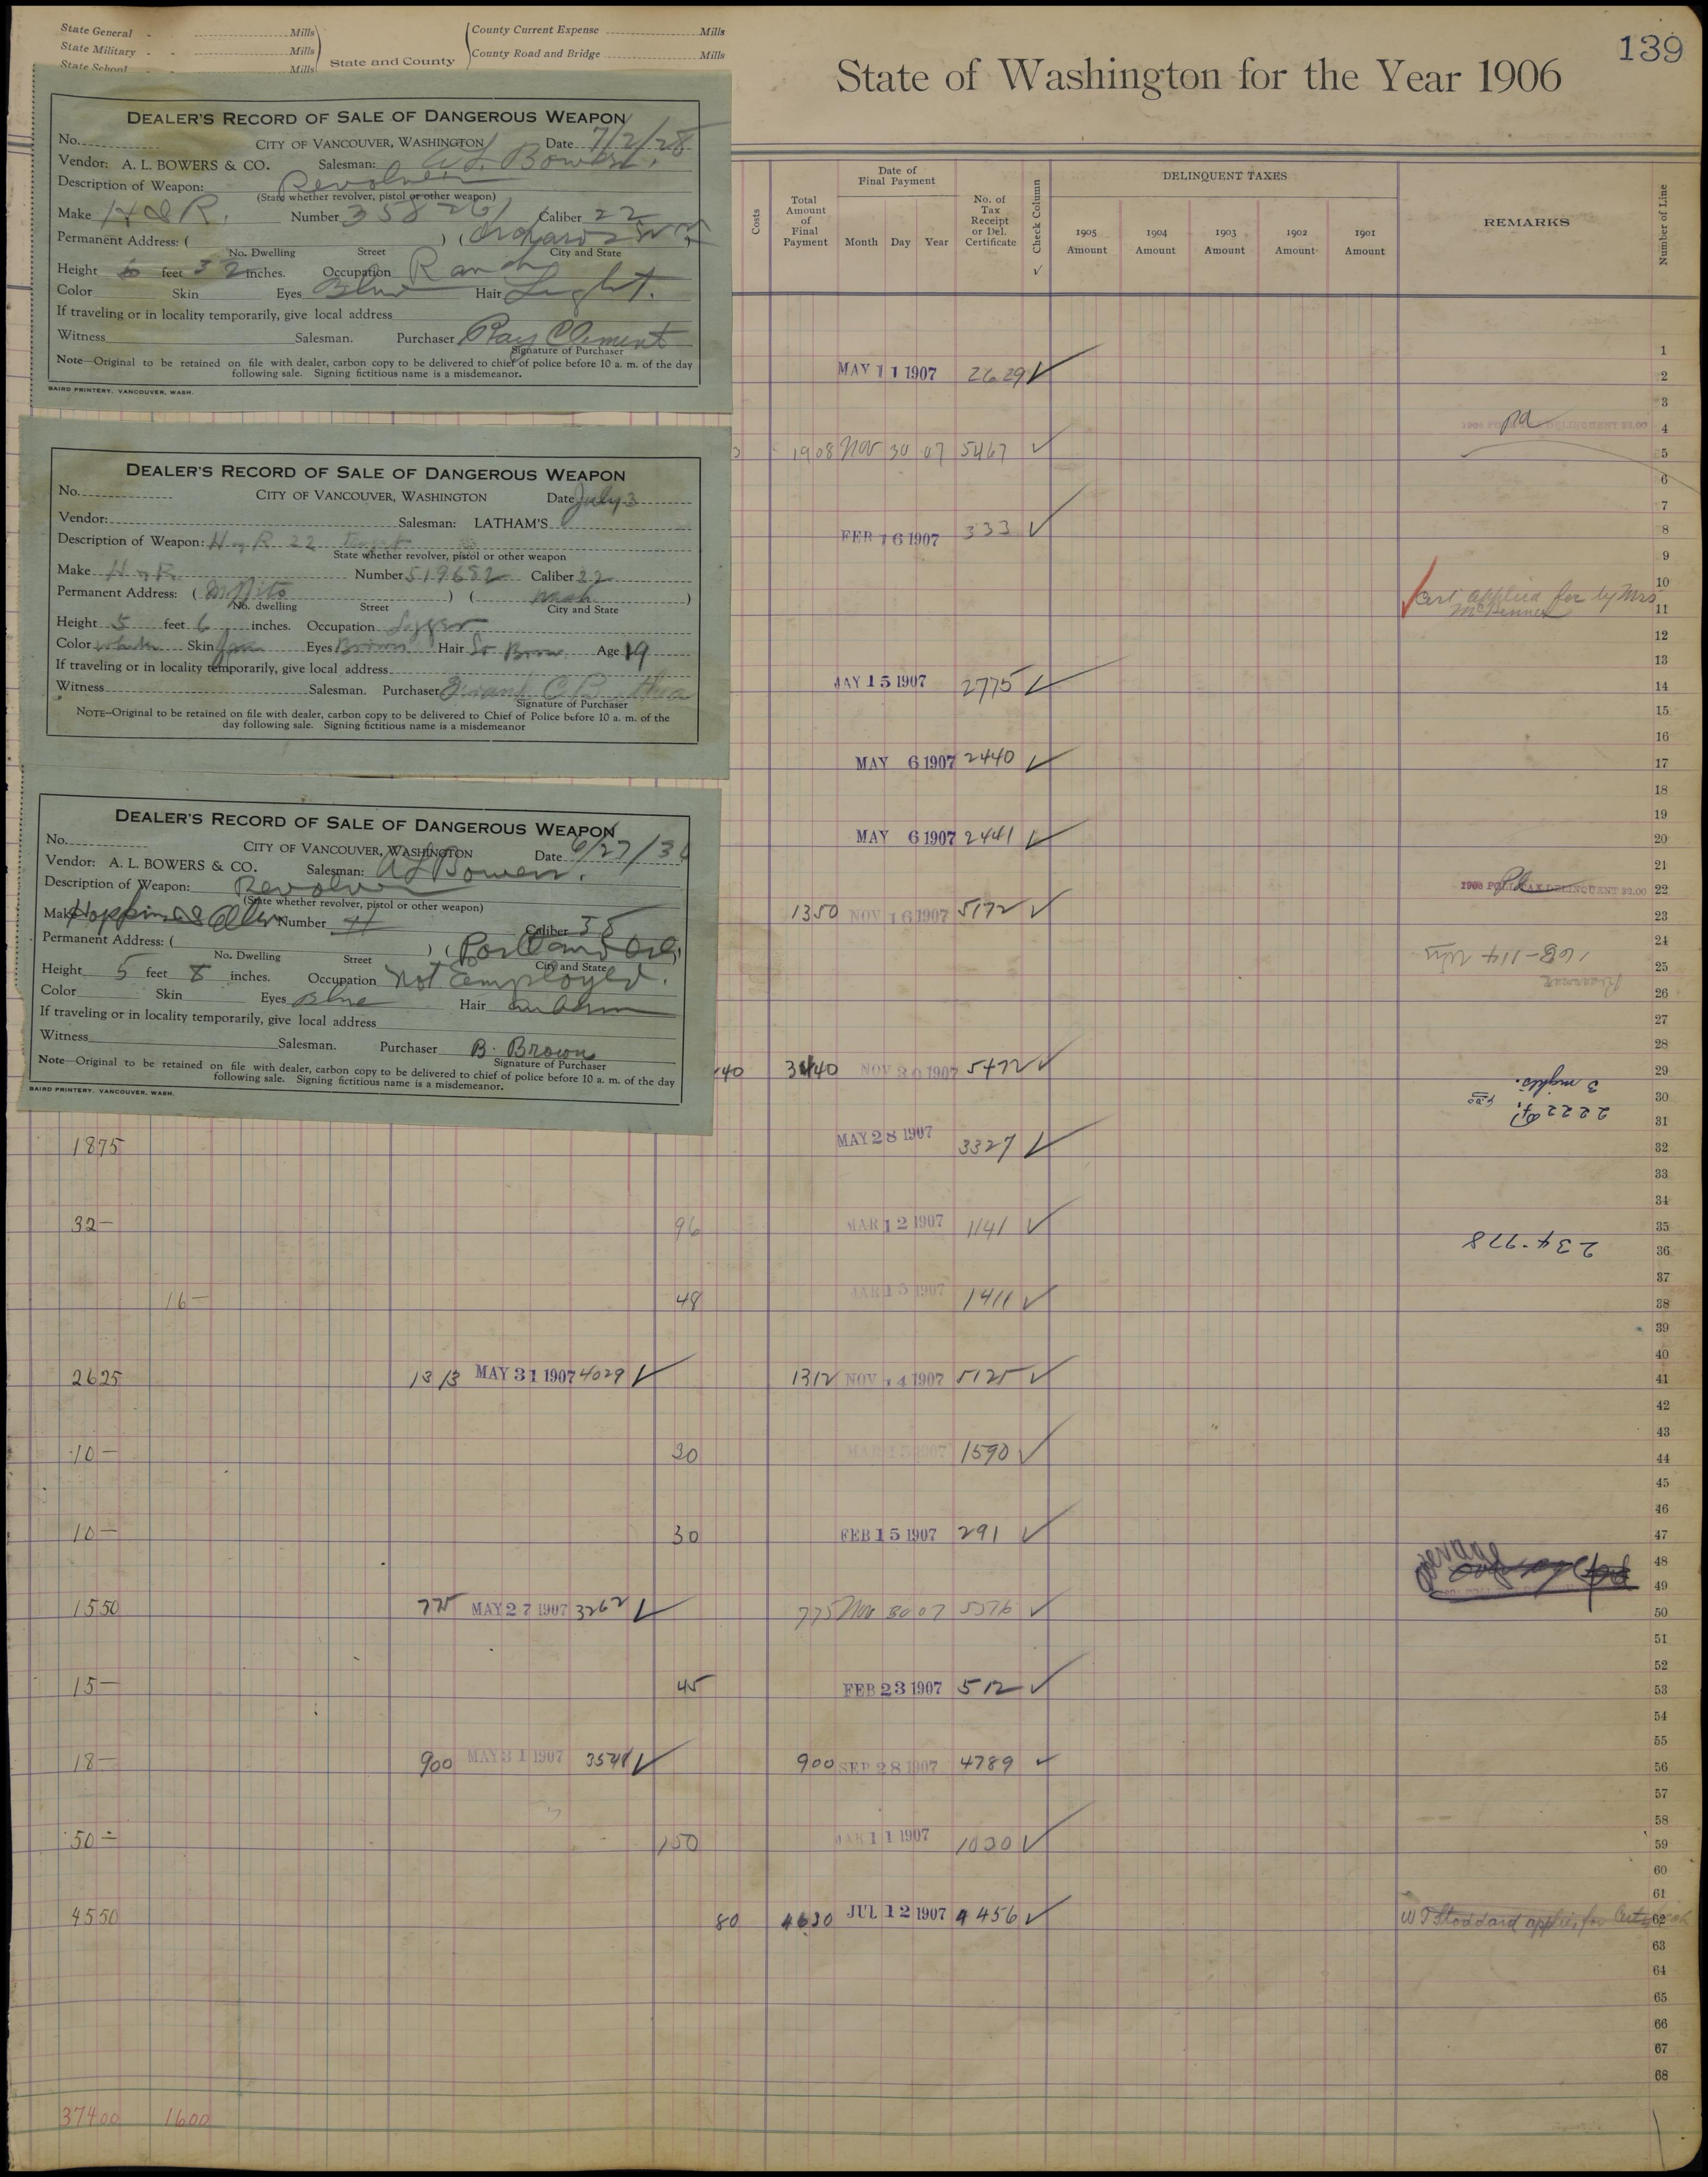 139
State of Washington for the Year 1906
State General - Mills
State Military - - Mills
State School Mills
State and County
County Current Expense Mills
County Road and Bridge Mills
DEALER'S RECORD OF SALE OF DANGEROUS WEAPON
No. CITY OF VANCOUVER, WASHINGTON Date 7/2/28
Vendor: A. L. BOWERS & CO. Salesman: A L Bowers.
Description of Weapon: Revolver
(State whether revolver, pistol or other weapon)
Make H & R. Number 358261 Caliber 22
Permanent Address: ( ) (
No. Dwelling Street City and State
Height 6 feet inches. Occupation Ranch
Color Skin Eyes Blue Hair Light.
If traveling or in locality temporarily, give local address
Witness Salesman. Purchaser Ray Clement
Signature of Purchaser
Note—Original to be retained on file with dealer, carbon copy to be delivered to chief of police before 10 a. m. of the day
following sale. Signing fictitious name is a misdemeanor.
BAIRD PRINTERY, VANCOUVER, WASH.
DEALER'S RECORD OF SALE OF DANGEROUS WEAPON
No. CITY OF VANCOUVER, WASHINGTON Date July 3
Vendor: Salesman: LATHAM'S
Description of Weapon: H & R 22
State whether revolver, pistol or other weapon
Make H & R Number 519682 Caliber 22
Permanent Address: ( ) ( Wash )
No. dwelling Street City and State
Height 5 feet 6 inches. Occupation Logger
Color White Skin Eyes Brown Hair Brown Age 19
If traveling or in locality temporarily, give local address
Witness Salesman. Purchaser
Signature of Purchaser
NOTE—Original to be retained on file with dealer, carbon copy to be delivered to Chief of Police before 10 a. m. of the
day following sale. Signing fictitious name is a misdemeanor
DEALER'S RECORD OF SALE OF DANGEROUS WEAPON
No. CITY OF VANCOUVER, WASHINGTON Date 6/27/3
Vendor: A. L. BOWERS & CO. Salesman: A L Bowers.
Description of Weapon: Revolver
(State whether revolver, pistol or other weapon)
Make Hoppins & Allen Number Caliber 38
Permanent Address: ( ) (Portland Ore.
No. Dwelling Street City and State
Height 5 feet 8 inches. Occupation Not Employed.
Color Skin Eyes Blue Hair Auburn
If traveling or in locality temporarily, give local address
Witness Salesman. Purchaser B. Brown
Signature of Purchaser
Note—Original to be retained on file with dealer, carbon copy to be delivered to chief of police before 10 a. m. of the day
following sale. Signing fictitious name is a misdemeanor.
BAIRD PRINTERY, VANCOUVER, WASH.
Costs
Total Amount of Final Payment
Date of Final Payment
Month Day Year
No. of Tax Receipt or Del. Certificate
Check Column
✓
DELINQUENT TAXES
1905 Amount
1904 Amount
1903 Amount
1902 Amount
1901 Amount
REMARKS
Number of Line
1
MAY 11 1907 2629 ✓ 2
3
1906 POLL TAX DELINQUENT $2.00 pd 4
1908 Nov 30 07 5467 ✓ 5
6
7
FEB 16 1907 333 ✓ 8
9
10
Cert applied for by Mrs
11
12
13
MAY 15 1907 2775 ✓ 14
15
16
MAY 6 1907 2440 ✓ 17
18
19
MAY 6 1907 2441 ✓ 20
21
1906 POLL TAX DELINQUENT $2.00 Pd 22
1350 NOV 16 1907 5172 ✓ 23
24
25
26
27
28
40 3440 NOV 30 1907 5472 ✓ 29
3 nights.
30
2222
31
1875 MAY 28 1907 3327 ✓ 32
33
34
32— 96 MAR 12 1907 1141 ✓ 35
234-978 36
37
16— 48 MAR 15 1907 1411 ✓ 38
39
40
2625 1313 MAY 31 1907 4029 ✓ 1312 NOV 14 1907 5125 ✓ 41
42
43
10— 30 MAR 15 1907 1590 ✓ 44
45
46
10— 30 FEB 15 1907 291 ✓ 47
average 48
49
1550 775 MAY 27 1907 3262 ✓ 775 Nov 30 07 5576 ✓ 50
51
52
15— 45 FEB 23 1907 512 ✓ 53
54
55
18— 900 MAY 31 1907 ✓ 900 SEP 28 1907 4789 ✓ 56
57
58
50— 150 MAR 11 1907 1030 ✓ 59
60
61
4550 80 4630 JUL 12 1907 4456 ✓ W T Stoddard applies for Cert 62
63
64
65
66
67
68
37400 1600